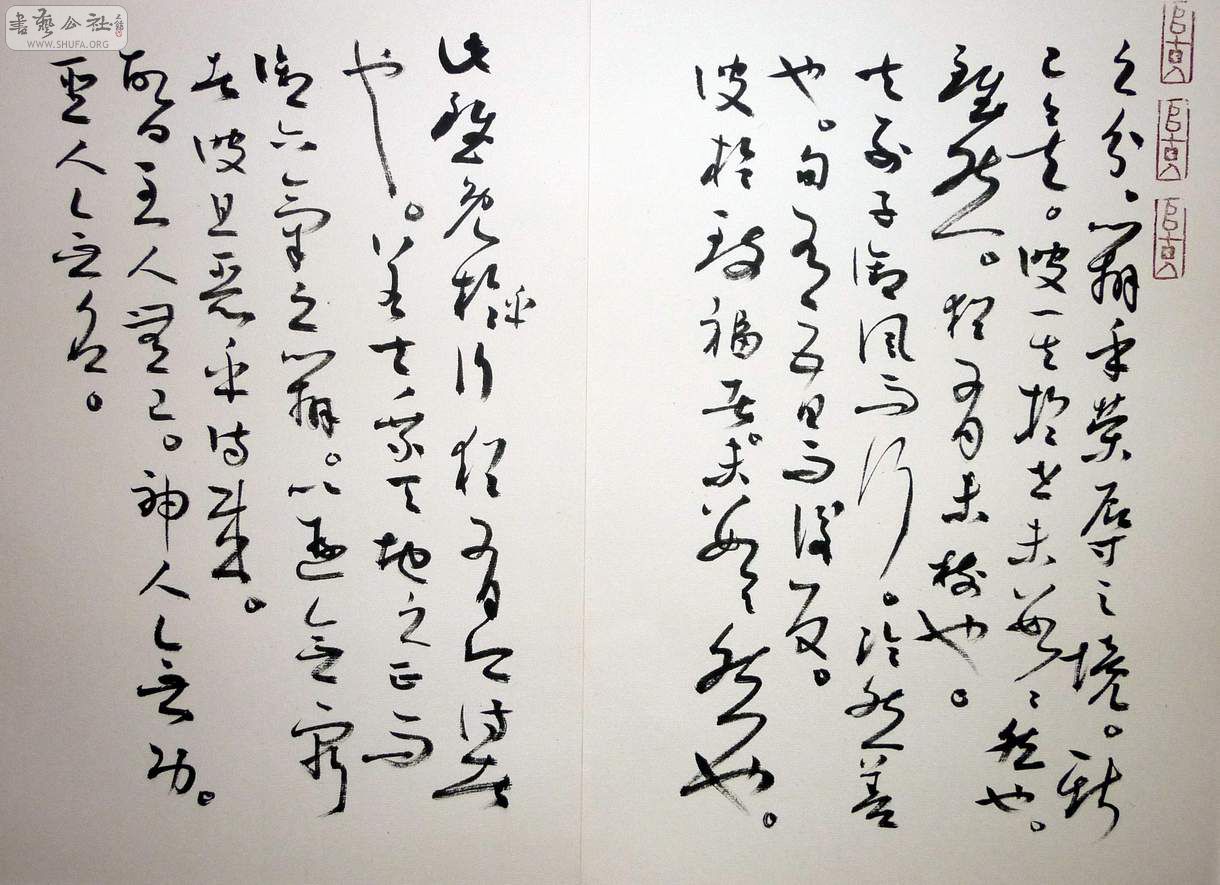 之分、辯乎榮辱之境。斯
已矣。彼其於世未數〻然也。
雖然。猶有未樹也。
夫列子御風而行。泠然善
也。旬有五日而後反。
彼於致福者。未數〻然也。
此雖免於乎行猶有所待者
也。若夫乘天地之正而
御六氣之辯。以遊無窮
者彼且惡乎待哉。
故曰至人無己。神人無功。
聖人無名。
書藝公社
WWW.SHUFA.ORG